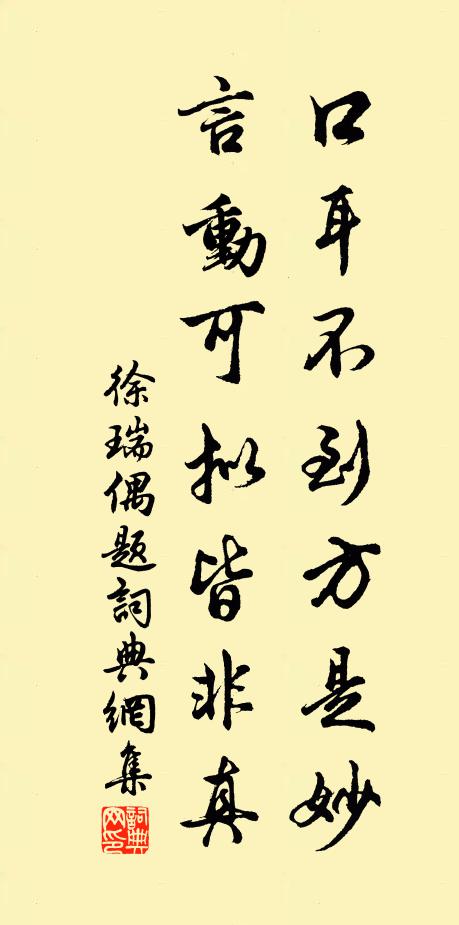 口耳不到方是妙
言動可拟皆非真
徐瑞偶题詞典網集
詞典網印